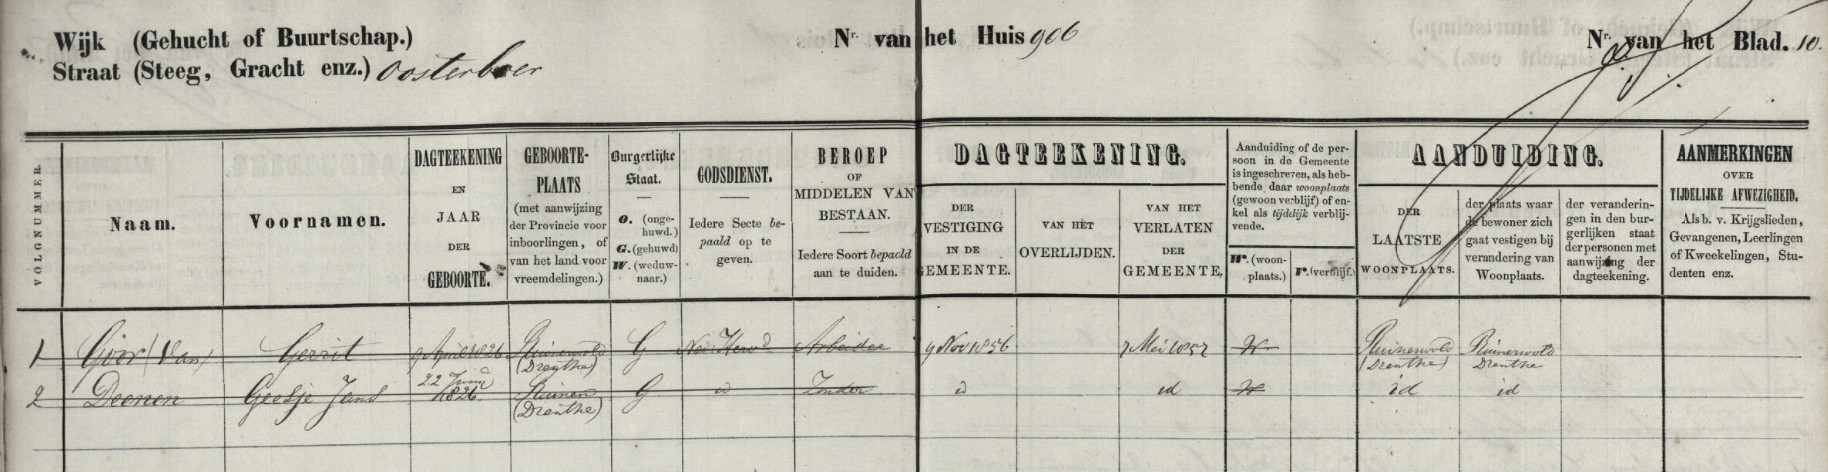 Wijk (Gehucht of Buurtschap.)
Straat (Steeg, Gracht enz.) Oosterboer
Nr. van het Huis 906
Nr. van het Blad. 10.
VOLGNUMMER
Naam.
Voornamen.
DAGTEEKENING
EN
JAAR
DER
GEBOORTE.
GEBOORTE-
PLAATS
(met aanwijzing
der Provincie voor
inboorlingen, of
van het land voor
vreemdelingen.)
Burgerlijke
Staat.
O. (onge-
huwd.)
G. (gehuwd)
W. (weduw-
naar.)
GODSDIENST.
Iedere Secte be-
paald op te
geven.
BEROEP
OF
MIDDELEN VAN
BESTAAN.
Iedere Soort bepaeld
aan te duiden.
DAGTEEKENING.
DER
VESTIGING
IN DE
GEMEENTE.
VAN HET
OVERLIJDEN.
VAN HET
VERLATEN
DER
GEMEENTE.
Aanduiding of de per-
soon in de Gemeente
is ingeschreven, als heb-
bende daar woonplaats
(gewoon verblijf) of en-
kel als tijdelijk verblij-
vende.
W. (woon-
plaats.)
V. (verblijf.)
AANDUIDING.
DER
LAATSTE
WOONPLAATS.
der plaats waar
de bewoner zich
gaat vestigen bij
verandering van
Woonplaats.
der veranderin-
gen in den bur-
gerlijken staat
der personen met
aanwijzing der
dagteekening.
AANMERKINGEN
OVER
TIJDELIJKE AFWEZIGHEID.
Als b. v. Krijgslieden,
Gevangenen, Leerlingen
of Kweekelingen, Stu-
denten enz.
1 Goor (Van) Gerrit 9 April 1826 Ruinerwold (Drenthe) G Ned Herv d Arbeider 9 Nov 1856 7 Mei 1857 W Ruinerwold (Drenthe) Ruinerwold Drenthe
2 Deenen Geesje Jans 22 Junij 1826 Ruinen (Drenthe) G id Zonder id id W id id